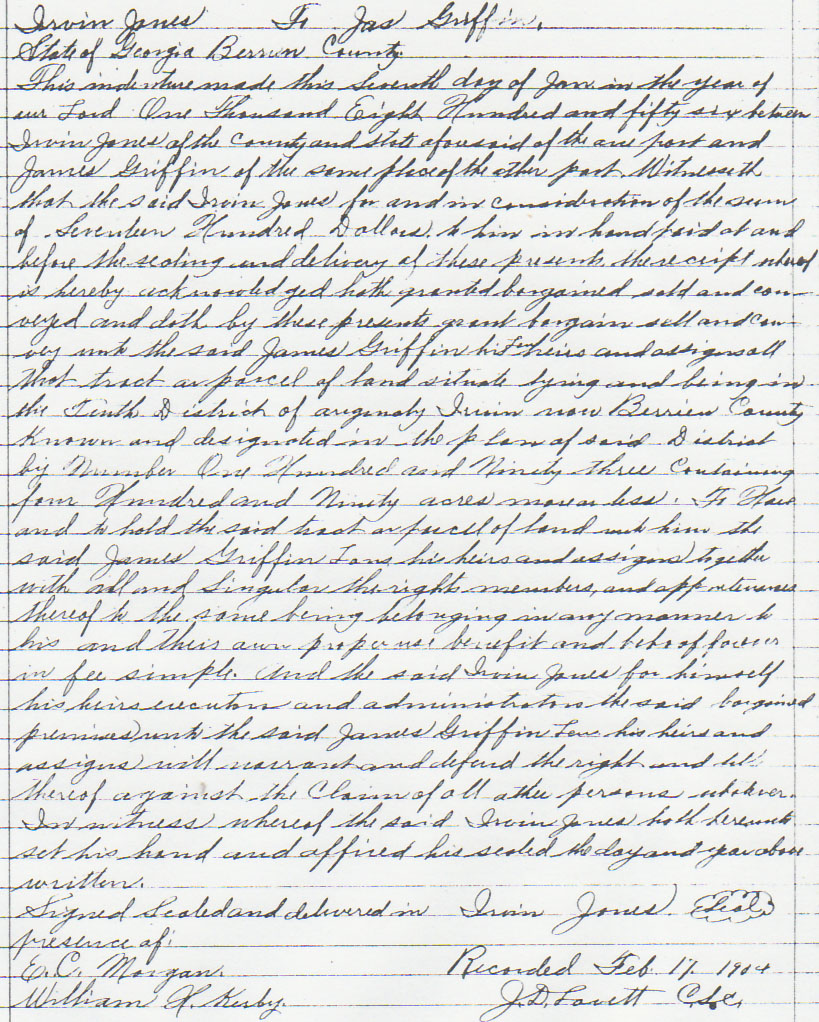 Irvin Jones To Jas Griffin.
State of Georgia Berrien County
This indenture made this Seventh day of Jan in the year of
our Lord One Thousand Eight Hundred and fifty six between
Irvin Jones of the County and state aforesaid of the one part and
James Griffin of the same place of the other part. Witnesseth
that the said Irvin Jones for and in consideration of the sum
of Seventeen Hundred Dollars to him in hand paid at and
before the sealing and delivery of these presents the receipt whereof
is hereby acknowledged hath granted bargained sold and con-
veyed and doth by these presents grant bargain sell and con-
vey unto the said James Griffin his heirs and assigns all
that tract or parcel of land situate lying and being in
the Tenth District of originaly Irwin now Berrien County
Known and designated in the plan of said District
by Number One Hundred and Ninety three Containing
four Hundred and Ninety acres more or less. To Have
and to hold the said tract or parcel of land unto him the
said James Griffin his heirs and assigns together
with all and Singular the rights members, and appertenances
thereof to the same being belonging in any manner to
his and their own proper use benefit and behoof forever
in fee simple. And the said Irvin Jones for himself
his heirs executors and administrators the said bargained
premises unto the said James Griffin his heirs and
assigns will warrant and defend the right and
thereof against the Claim of all other persons whatever.
In witness whereof the said Irvin Jones hath hereunto
set his hand and affixed his sealed the day and year above
written.
Signed Sealed and delivered in Irvin Jones Seal
presence of:
E. C. Morgan. Recorded Feb. 17. 1904
William H. Kerby. J. D. Lovett C.S.C.